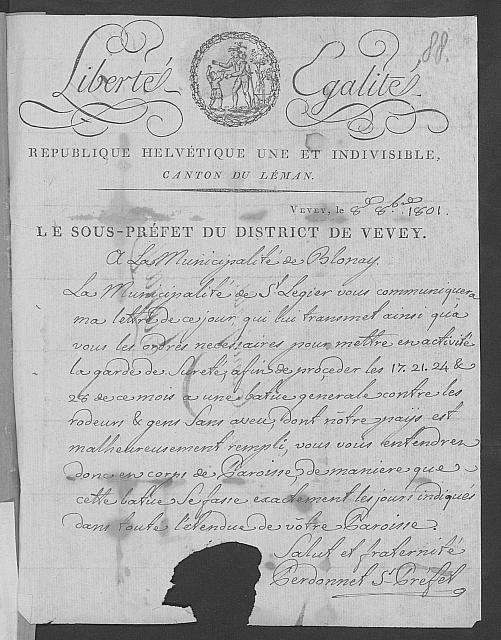 88.
Liberté Egalité.
REPUBLIQUE HELVÉTIQUE UNE ET INDIVISIBLE,
CANTON DU LÉMAN.
VEVEY, le 8.e 8.bre 1801.
LE SOUS-PRÉFET DU DISTRICT DE VEVEY.
A La Municipalité de Blonay.
La Municipalité de St Legier vous communiquera
ma lettre de ce jour, qui lui transmet ainsi qu'a
vous les ordres necessaires pour mettre en activité
la garde de Sureté, afin de proceder les 17. 21. 24 &
28 de ce mois a une batüe generale contre les
rodeurs & gens Sans aveu, dont nôtre païs est
malheureusement rempli, vous vous entendrez
donc en corps de Paroisse, de maniere que
cette batüe Se fasse exactement les jours indiqués
dans toute l'étendue de vôtre Paroisse.
Salut et fraternité
Perdonnet Ss Préfet